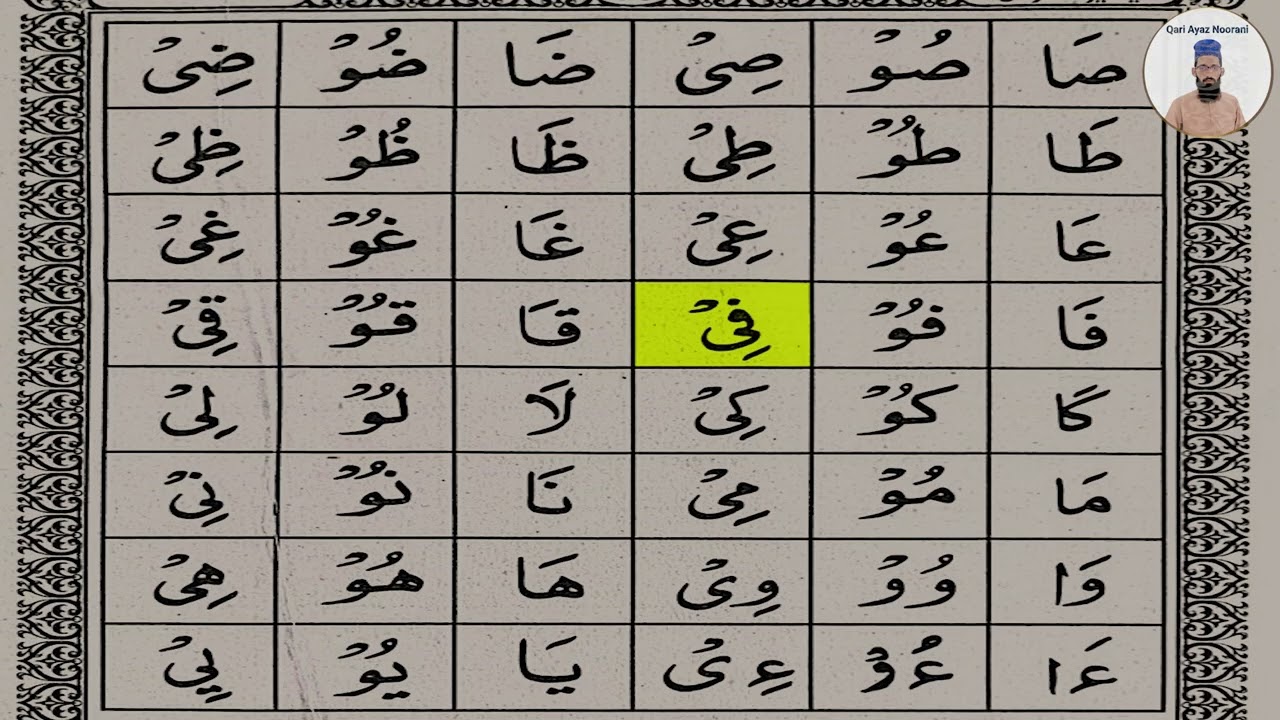 Qari Ayaz Noorani
صَا صُوْ صِیْ ضَا ضُوْ ضِیْ
طَا طُوْ طِیْ ظَا ظُوْ ظِیْ
عَا عُوْ عِیْ غَا غُوْ غِیْ
فَا فُوْ فِیْ قَا قُوْ قِیْ
كَا كُوْ كِیْ لَا لُوْ لِیْ
مَا مُوْ مِیْ نَا نُوْ نِیْ
وَا وُوْ وِیْ هَا هُوْ هِیْ
ءَا ءُوْ ءِیْ يَا يُوْ يِیْ